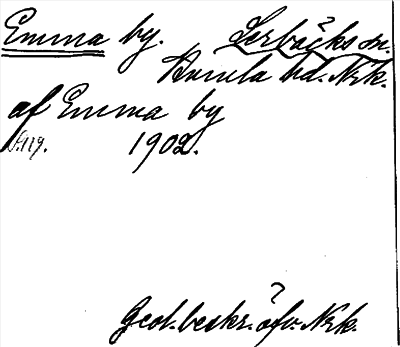 Emma by. Lerbäcks sn.
Kumla hd. Nrk.
af Emma by
S. 119. 1902.
Geol. beskr. öfv. Nrk.